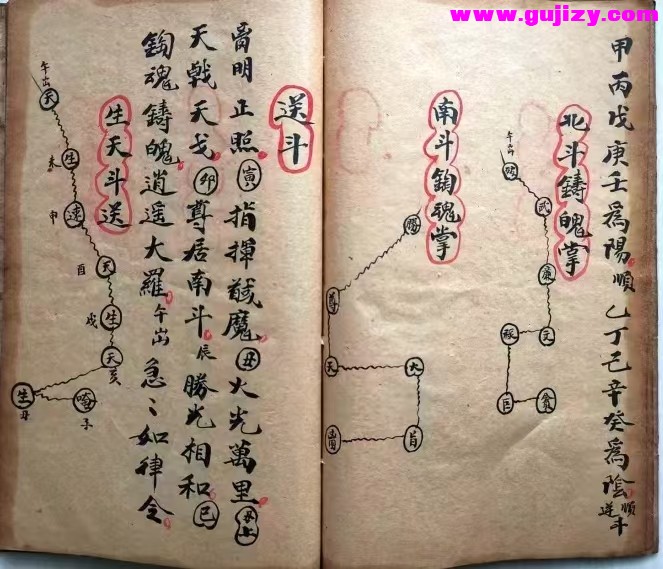 www.gujizy.com
甲丙戊庚壬為陽順乙丁己辛癸為陰順
逆斗
北斗鑄魄掌
午出
武
廉
文
祿
巨
貪
南斗鉤魂掌
勝
尊
天
大
指
送斗
明正照寅指揮馘魔丑火光萬里丑上
天戟天戈卯尊居南斗辰勝光相和巳
鉤魂鑄魄逍遥大羅午出急〻如律令
生天斗送
午出
天
生
未
逵
申
天
酉
生
戌
天
亥
生
丑
子